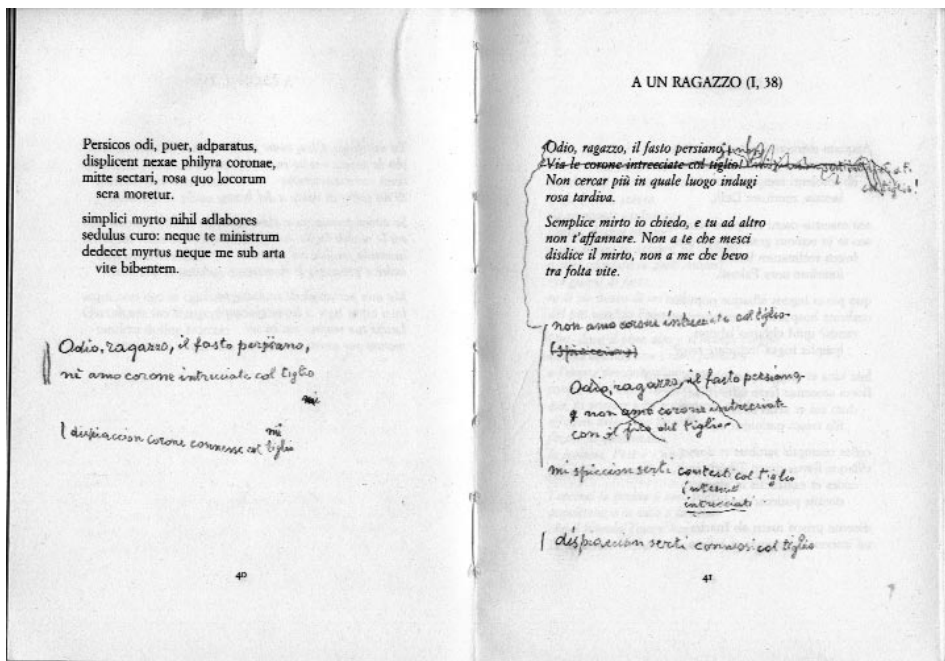 Persicos odi, puer, adparatus,
displicent nexae philyra coronae,
mitte sectari, rosa quo locorum
sera moretur.
simplici myrto nihil adlabores
sedulus curo: neque te ministrum
dedecet myrtus neque me sub arta
vite bibentem.
Odio, ragazzo, il fasto persiano,
né amo corone intrecciate col tiglio
mi
dispiaccion corone connesse col tiglio
40
A UN RAGAZZO (I, 38)
Odio, ragazzo, il fasto persiano,
Via le corone intrecciate col tiglio!
Non cercar più in quale luogo indugi
rosa tardiva.
Semplice mirto io chiedo, e tu ad altro
non t'affannare. Non a te che mesci
disdice il mirto, non a me che bevo
tra folta vite.
non amo corone intrecciate col tiglio
Odio, ragazzo, il fasto persiano
e non amo corone intrecciate
con il filo del tiglio
mi spiaccion serti contesti col tiglio
intessuti
intrecciati
dispiaccion serti connessi col tiglio
41